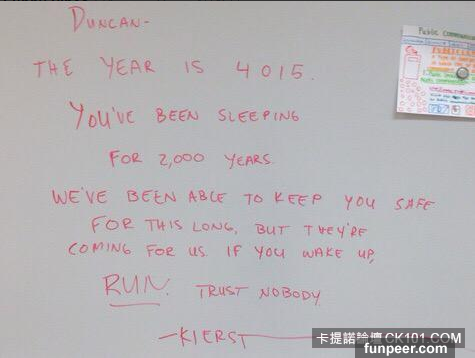 DUNCAN-
THE YEAR IS 4015.
YOU'VE BEEN SLEEPING
FOR 2,000 YEARS.
WE'VE BEEN ABLE TO KEEP YOU SAFE
FOR THIS LONG, BUT THEY'RE
COMING FOR US. IF YOU WAKE UP,
RUN. TRUST NOBODY.
-KIERST
Public
卡提諾論壇 CK101.COM
funpeer.com